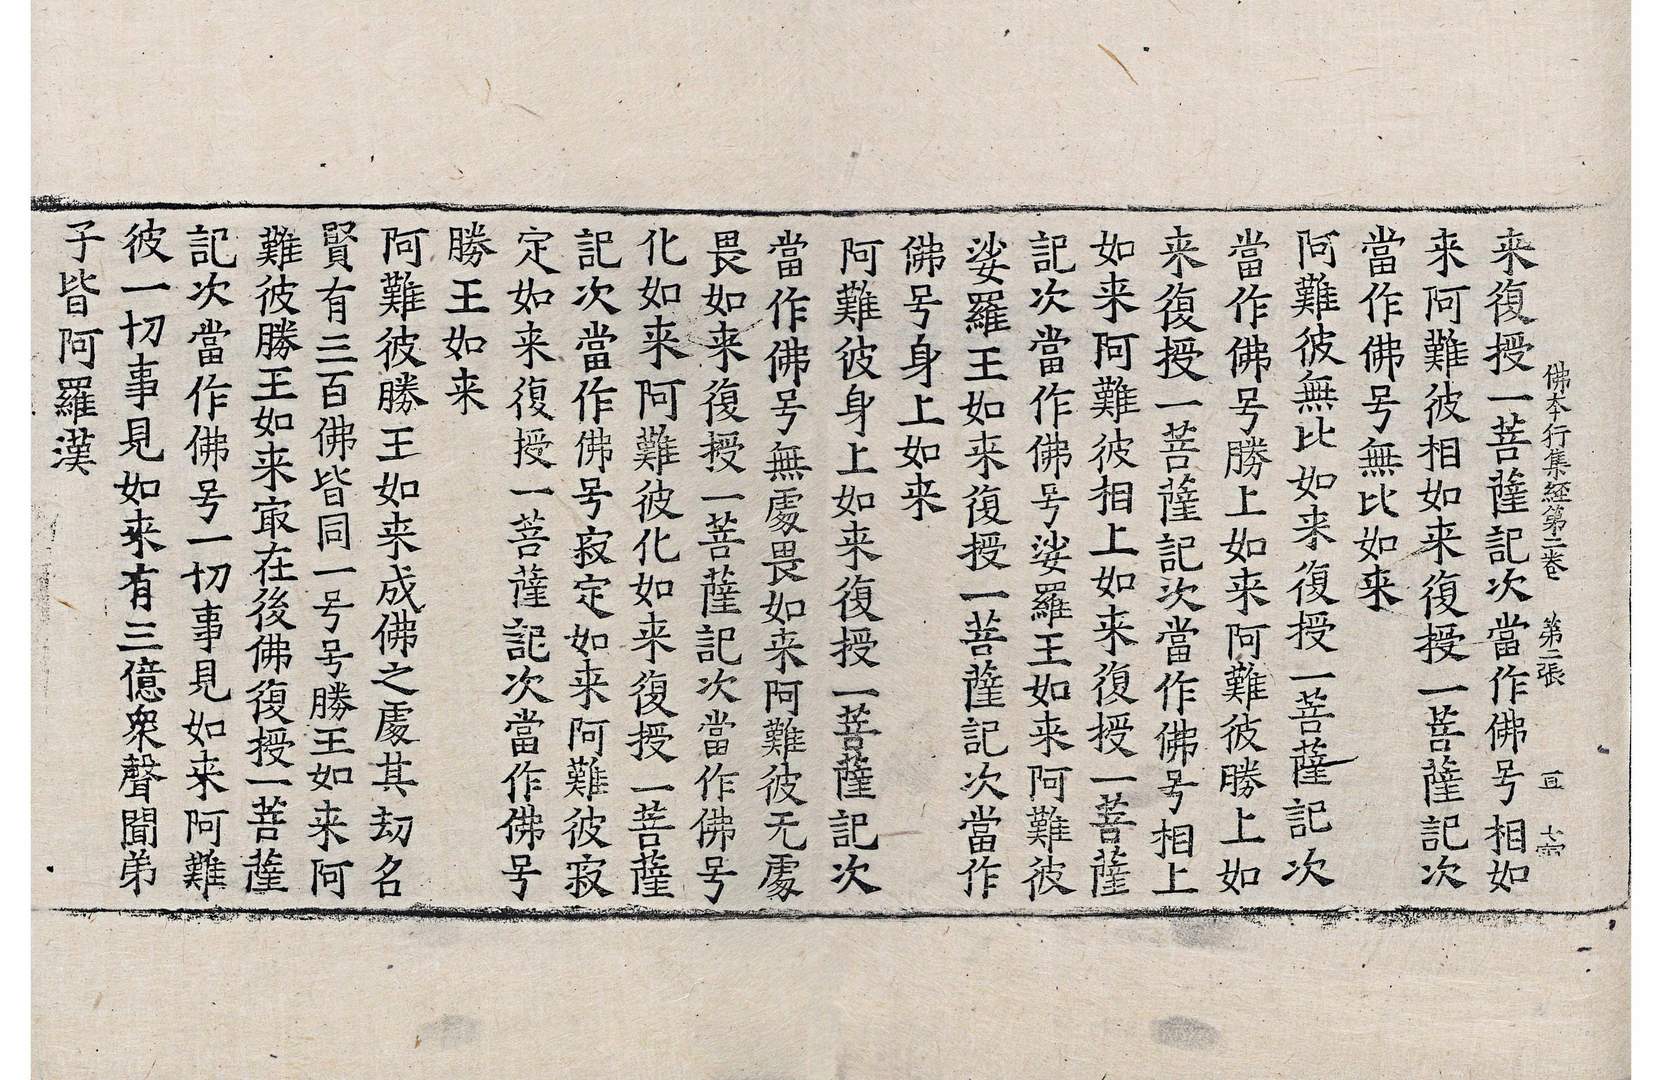 佛本行集經第二卷　第二張
来復授一菩薩記次當作佛号相如
来阿難彼相如来復授一菩薩記次
當作佛号無比如来
阿難彼無比如来復授一菩薩記次
當作佛号勝上如来阿難彼勝上如
来復授一菩薩記次當作佛号相上
如来阿難彼相上如来復授一菩薩
記次當作佛号娑羅王如来阿難彼
娑羅王如来復授一菩薩記次當作
佛号身上如来
阿難彼身上如来復授一菩薩記次
當作佛号無處畏如来阿難彼无處
畏如来復授一菩薩記次當作佛号
化如来阿難彼化如来復授一菩薩
記次當作佛号寂定如来阿難彼寂
定如来復授一菩薩記次當作佛号
勝王如来
阿難彼勝王如来成佛之處其劫名
賢有三百佛皆同一号号勝王如来阿
難彼勝王如来冣在後佛復授一菩薩
記次當作佛号一切事見如来阿難
彼一切事見如来有三億衆聲聞弟
子皆阿羅漢